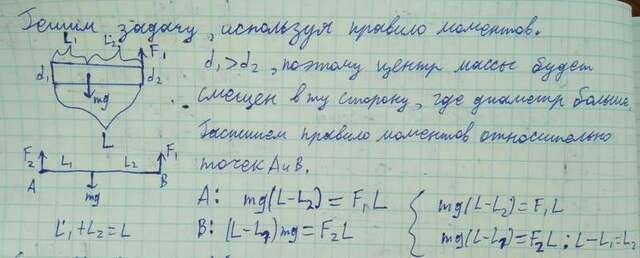 Решим задачу, используя правило моментов.
L₁ L₂ F₁
d₁ d₂
mg
L
d₁>d₂, поэтому центр массы будет
смещен в ту сторону, где диаметр больше.
Распишем правило моментов относительно
точек A и B.
F₂ L₁ L₂ F₁
A B
mg
L₁+L₂=L
A: mg(L-L₂)=F₁L
B: (L-L₁)mg=F₂L
mg(L-L₂)=F₁L
mg(L-L₁)=F₂L; L-L₁=L₂